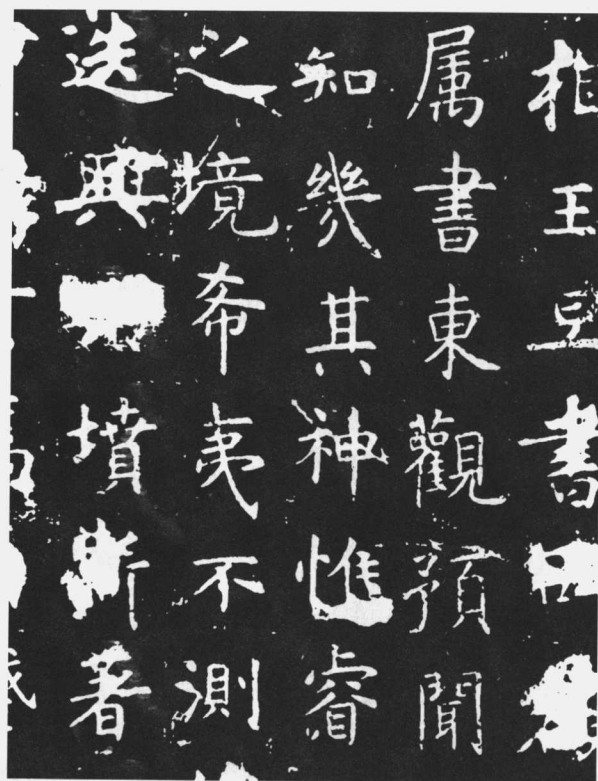 相王旦書
属書東觀預聞
知幾其神惟睿
之境希夷不測
迭興墳斯著